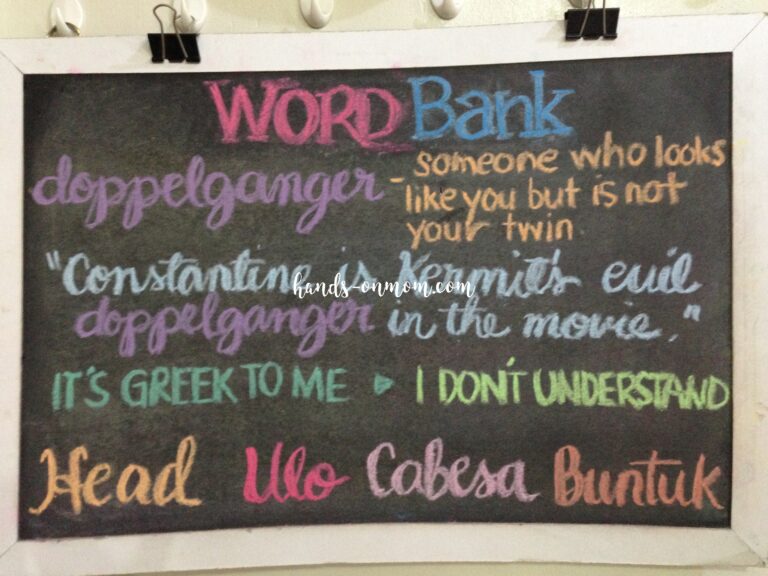 WORD Bank
doppelganger - someone who looks
like you but is not
your twin
"Constantine is Kermit's evil
hands-onmom.com
doppelganger in the movie."
IT'S GREEK TO ME ▸ I DON'T UNDERSTAND
Head Ulo Cabesa Buntuk